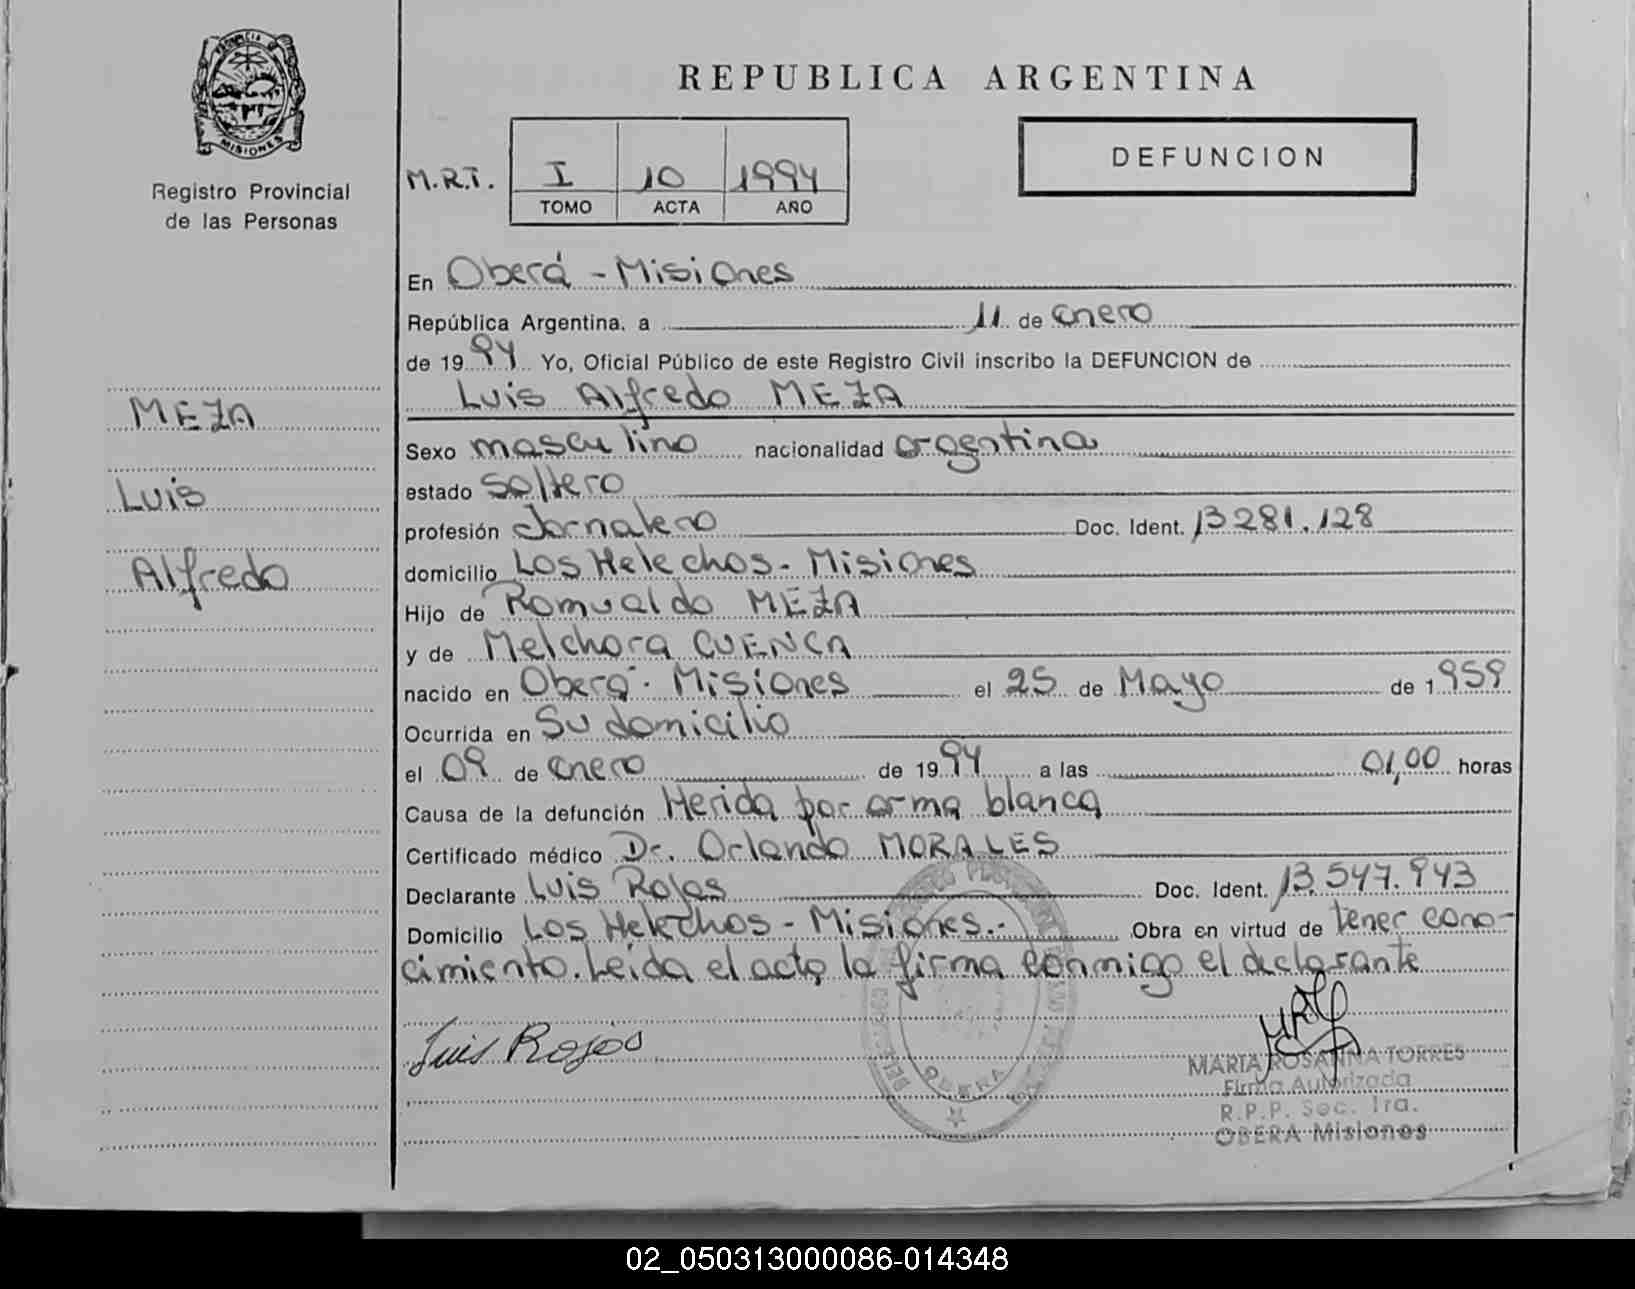 PROVINCIA DE
MISIONES
Registro Provincial
de las Personas
MEZA
Luis
Alfredo
REPUBLICA ARGENTINA
M.R.T. I 10 1994
TOMO ACTA AÑO
DEFUNCION
En Oberá - Misiones
República Argentina, a 11 de enero
de 1994 Yo, Oficial Público de este Registro Civil inscribo la DEFUNCION de
Luis Alfredo MEZA
Sexo masculino nacionalidad argentina
estado soltero
profesión Jornalero Doc. Ident. 13281.128
domicilio Los Helechos - Misiones
Hijo de Romualdo MEZA
y de Melchora CUENCA
nacido en Oberá - Misiones el 25 de Mayo de 1959
Ocurrida en Su domicilio
el 09 de enero de 1994 a las 01,00 horas
Causa de la defunción Herida por arma blanca
Certificado médico Dr. Orlando MORALES
Declarante Luis Rojas Doc. Ident. 13.547.943
Domicilio Los Helechos - Misiones.- Obra en virtud de tener cono-
cimiento. Leída el acta, la firma conmigo el declarante
Luis Rojas
OBERA
MARIA ROSANNA TORRES
Firma Autorizada
R.P.P. Sec. 1ra.
OBERA Misiones
02_050313000086-014348